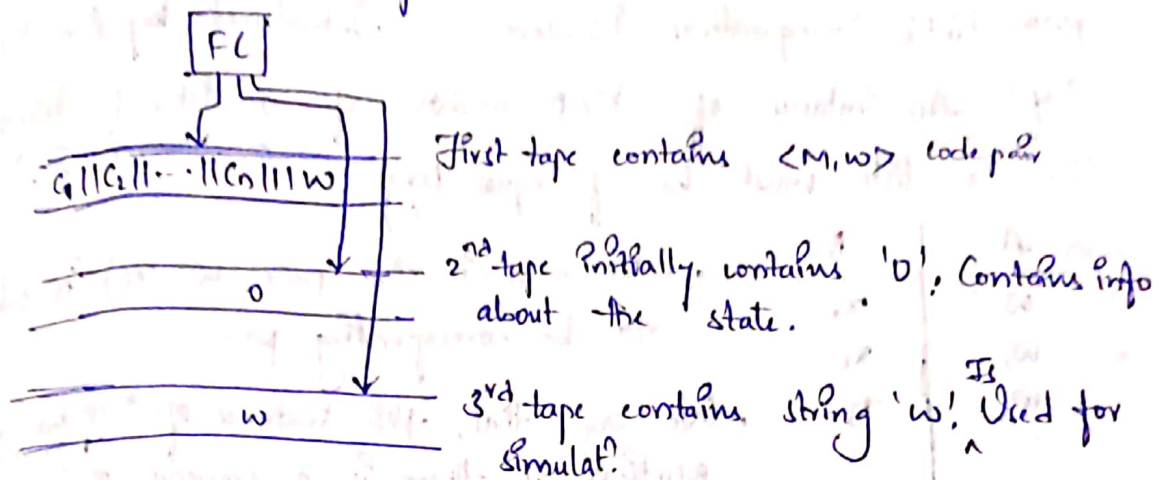 FC
C1||C2||...||Cn|||w
First tape contains <M,w> code pair
0
2nd tape initially contains '0'. Contains info
about the state.
w
3rd tape contains string 'w'. Is Used for
simulatn.